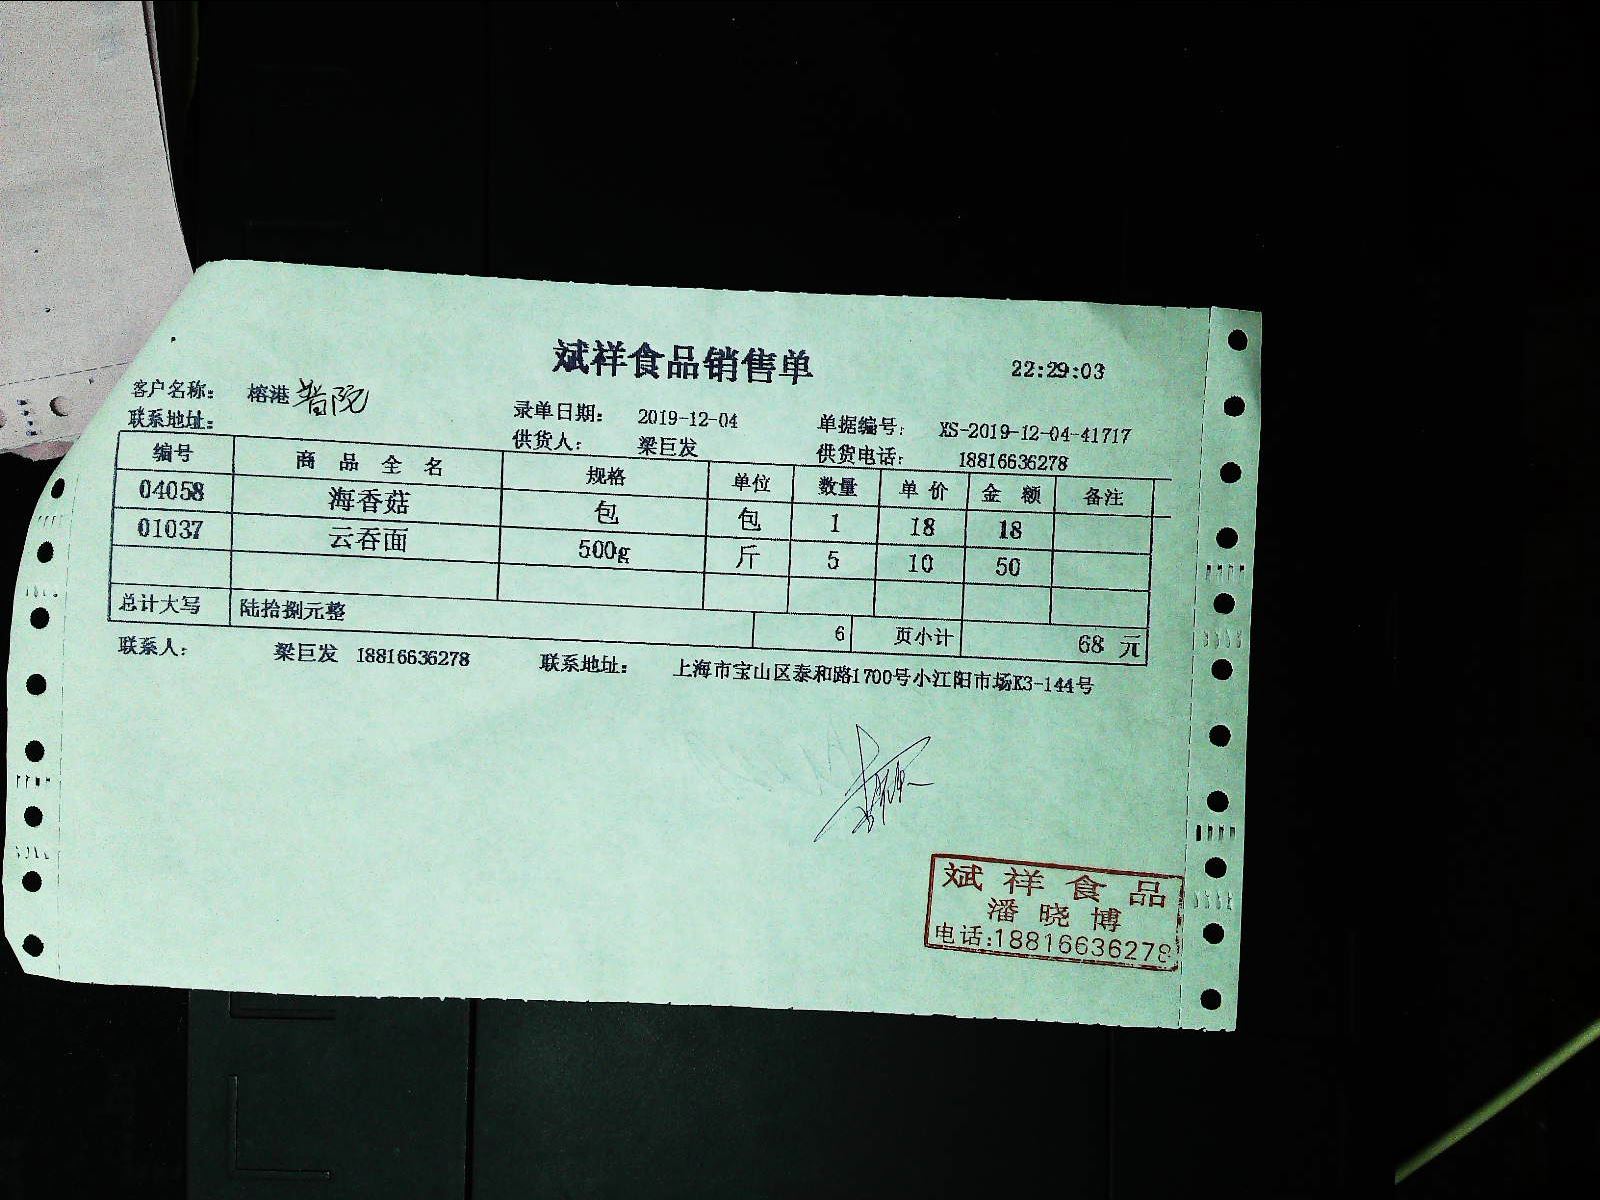 斌祥食品销售单 22:29:03
客户名称: 榕港 普陀
录单日期: 2019-12-04 单据编号: XS-2019-12-04-41717
联系地址:
供货人: 梁巨发 供货电话: 18816636278
编号 商品全名 规格 单位 数量 单价 金额 备注
04058 海香菇 包 包 1 18 18
01037 云吞面 500g 斤 5 10 50
总计大写 陆拾捌元整 6 页小计 68 元
联系人: 梁巨发 18816636278 联系地址: 上海市宝山区泰和路1700号小江阳市场K3-144号
斌祥食品
潘晓博
电话:18816636278